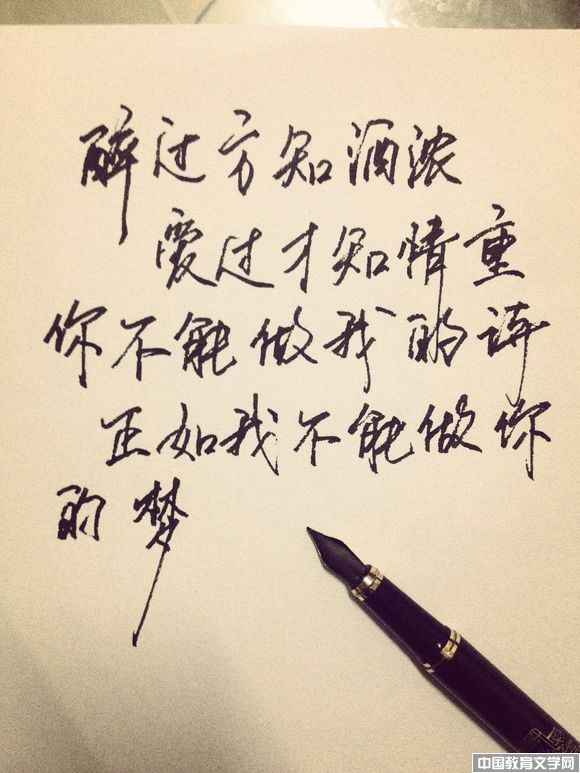 醉过方知酒浓
爱过才知情重
你不能做我的诗
正如我不能做你
的梦
中国教育文学网